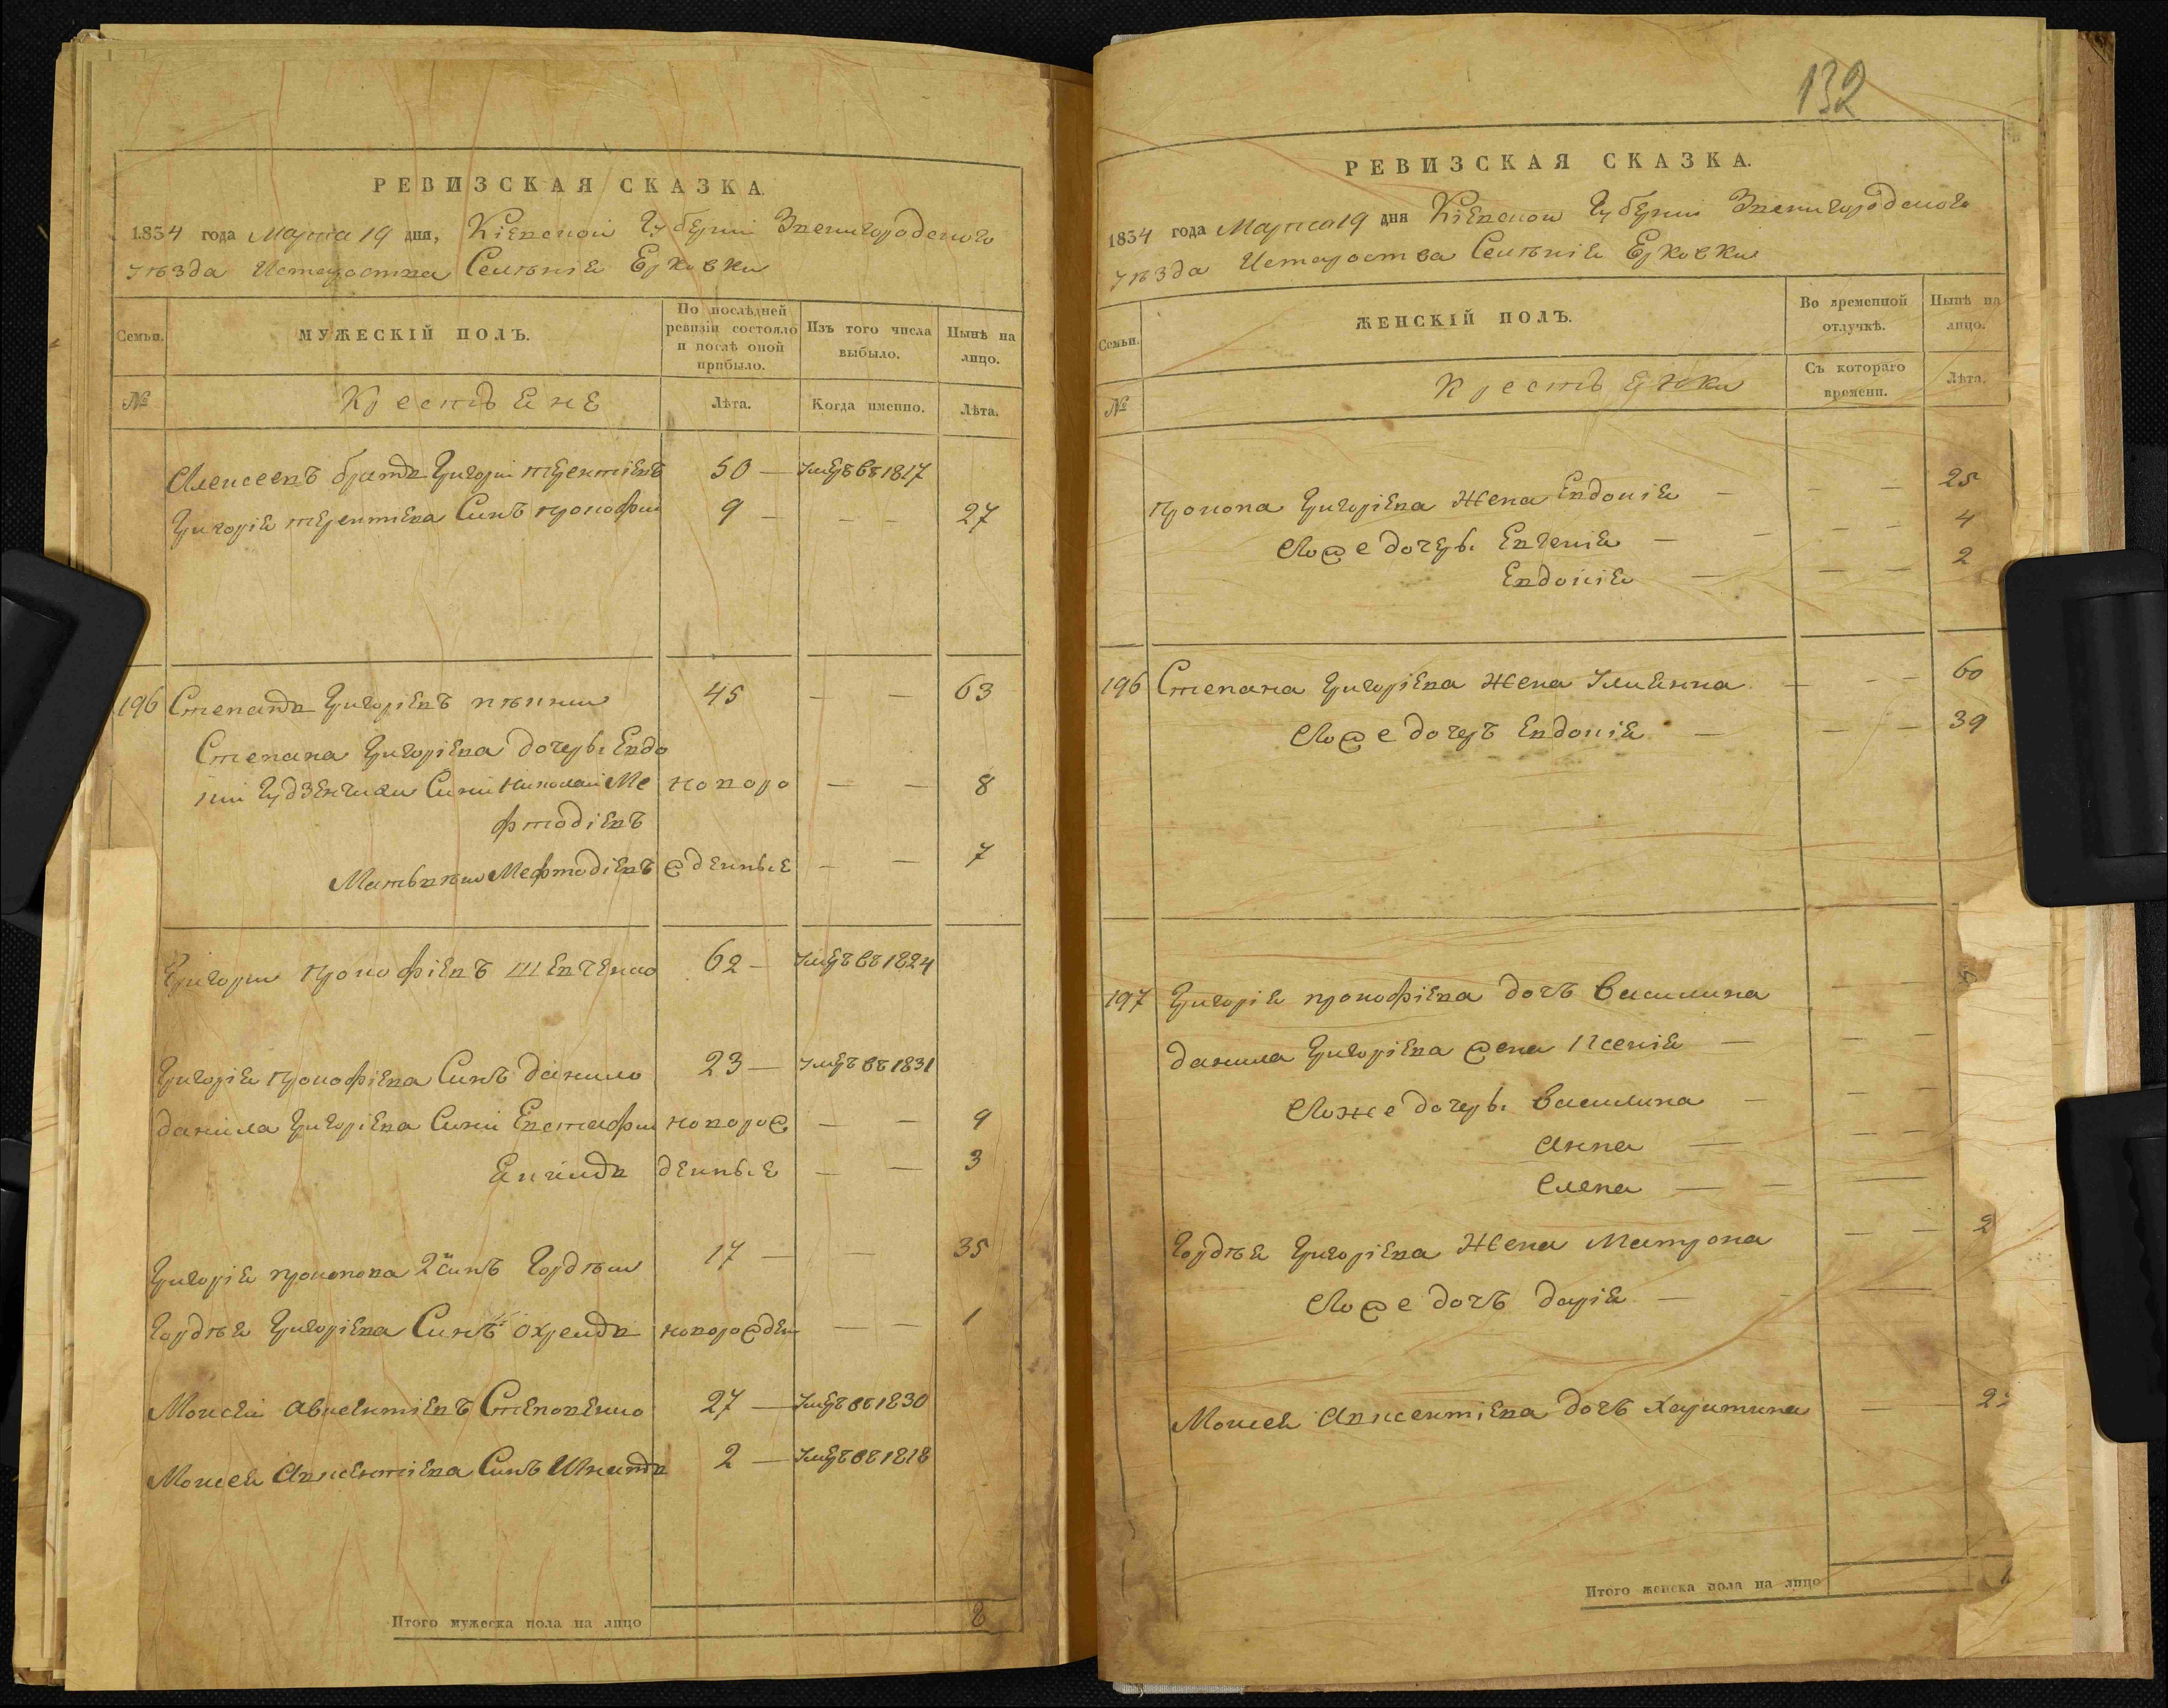 РЕВИЗСКАЯ СКАЗКА.
1834 года Марта 19 дня, Кіевской Губерніи Звенигородского
уѣзда Истароства Селѣнія Ерковки
Семьи.
МУЖЕСКІЙ ПОЛЪ.
По послѣдней ревизіи состояло и послѣ оной прибыло.
Изъ того числа выбыло.
Нынѣ на лицо.
№
Крестьяне
Лѣта.
Когда именно.
Лѣта.
Алексеевъ братъ Григорій терентіевъ 50 — умеръ въ 1817
Григорія терентіева Синъ прокофій 9 — — — 27
196 Степанъ Григоріевъ 45 — — 63
Степана Григоріева дочеры Евдо
кіи Гудзенчихи Сини Николай Ме новоро — — 8
фтодіевъ
Матьвѣй Мефтодіевъ жденные — — 7
Григорій прокофіевъ шевченко 62 — умеръ въ 1824
Григорія прокофіева Синъ данило 23 — умеръ въ 1831
данила Григоріева Сини Евстафій новорож — — 9
Екимъ денные — — 3
Григорія прокопова 2й синъ Гордѣй 17 — — 35
Гордѣя Григоріева Синъ охремъ новорожден — — 1
Моисей авксентіевъ Степовенко 27 — умеръ въ 1830
Моисея авксентіева Синъ Игнатъ 2 — умеръ въ 1818
Итого мужеска пола на лицо 8
132
РЕВИЗСКАЯ СКАЗКА.
1834 года Марта 19 дня Кіевской Губерніи Звенигородского
уѣзда Истароства Селѣнія Ерковки
Семьи.
ЖЕНСКІЙ ПОЛЪ.
Во временной отлучкѣ.
Нынѣ на лицо.
№
Крестьянки
Съ котораго времени.
Лѣта.
прокопа Григоріева Жена Евдокія — — — 25
Егоже дочеры Евгенія — — — 4
Евдокія — — — 2
196 Степана Григоріева Жена Улиянна — — — 60
Егоже дочеръ Евдокія — — — 39
197 Григорія прокофіева дочъ Василина — —
данила Григоріева жена Ксенія — — —
Егоже дочеры Василина — —
Анна — — —
Елена — — —
Гордѣя Григоріева Жена Матрона — — 2
Егоже дочъ дарія — — —
Моисея Авксентіева дочъ Харитина — — 2
Итого женска пола на лицо